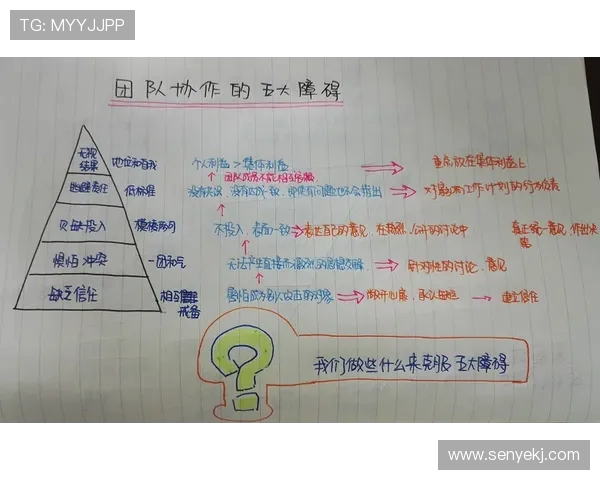 TG: MYYJJPP
团队协作的五大障碍
无视结果 地位和自我 个人利益 > 集体利益 重点放在集体利益上
团队成员不能相互
逃避责任 低标准 没有 没有达成一致,即使有问题也不会指出 对影响工作计划的行为负责
欠缺投入 模棱两可 不投入,表面一致 表达自己的意见,在 公开的讨论中 真正统一意见,作出决定
惧怕冲突 一团和气 无法产生直接而激烈的思想交锋 针对性的讨论,意见
缺乏信任 相互戒备 害怕成为别人攻击的对象 敞开心扉,承认 建立信任
我们做些什么来克服五大障碍
www.senyekj.com